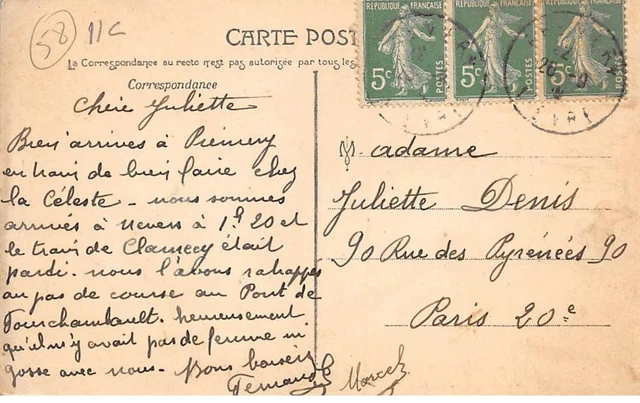 58 11c
CARTE POST
La Correspondance au recto n'est pas autorisée par tous les
Correspondance
RÉPUBLIQUE FRANÇAISE
5c POSTES
RÉPUBLIQUE FRANÇAISE
5c POSTES
5c POSTES
Chère Juliette
Bien arrivés à Prémery
en train de bien faire chez
la Céleste - nous sommes
arrivés à Nevers à 1h 20 et
le train de Clamecy était
parti. nous l'avons rahappé
au pas de course au Pont de
Fourchambault. heureusement
qu'il n'y avait pas de femme ni
gosse avec nous. Bons baisers
Fernand & Marcel
Madame
Juliette Denis
90 Rue des Pyrénées 90
Paris 20e